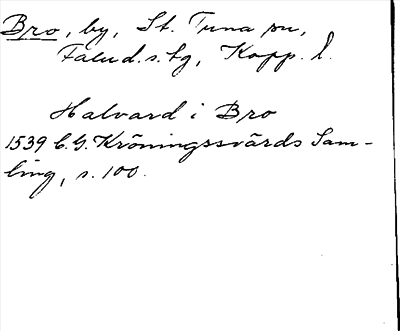 Bro, by, St. Tuna sn,
Falud. s. tg, Kopp. l.
Halvard i Bro
1539 C. G. Kröningssvärds Sam-
ling, s. 100.